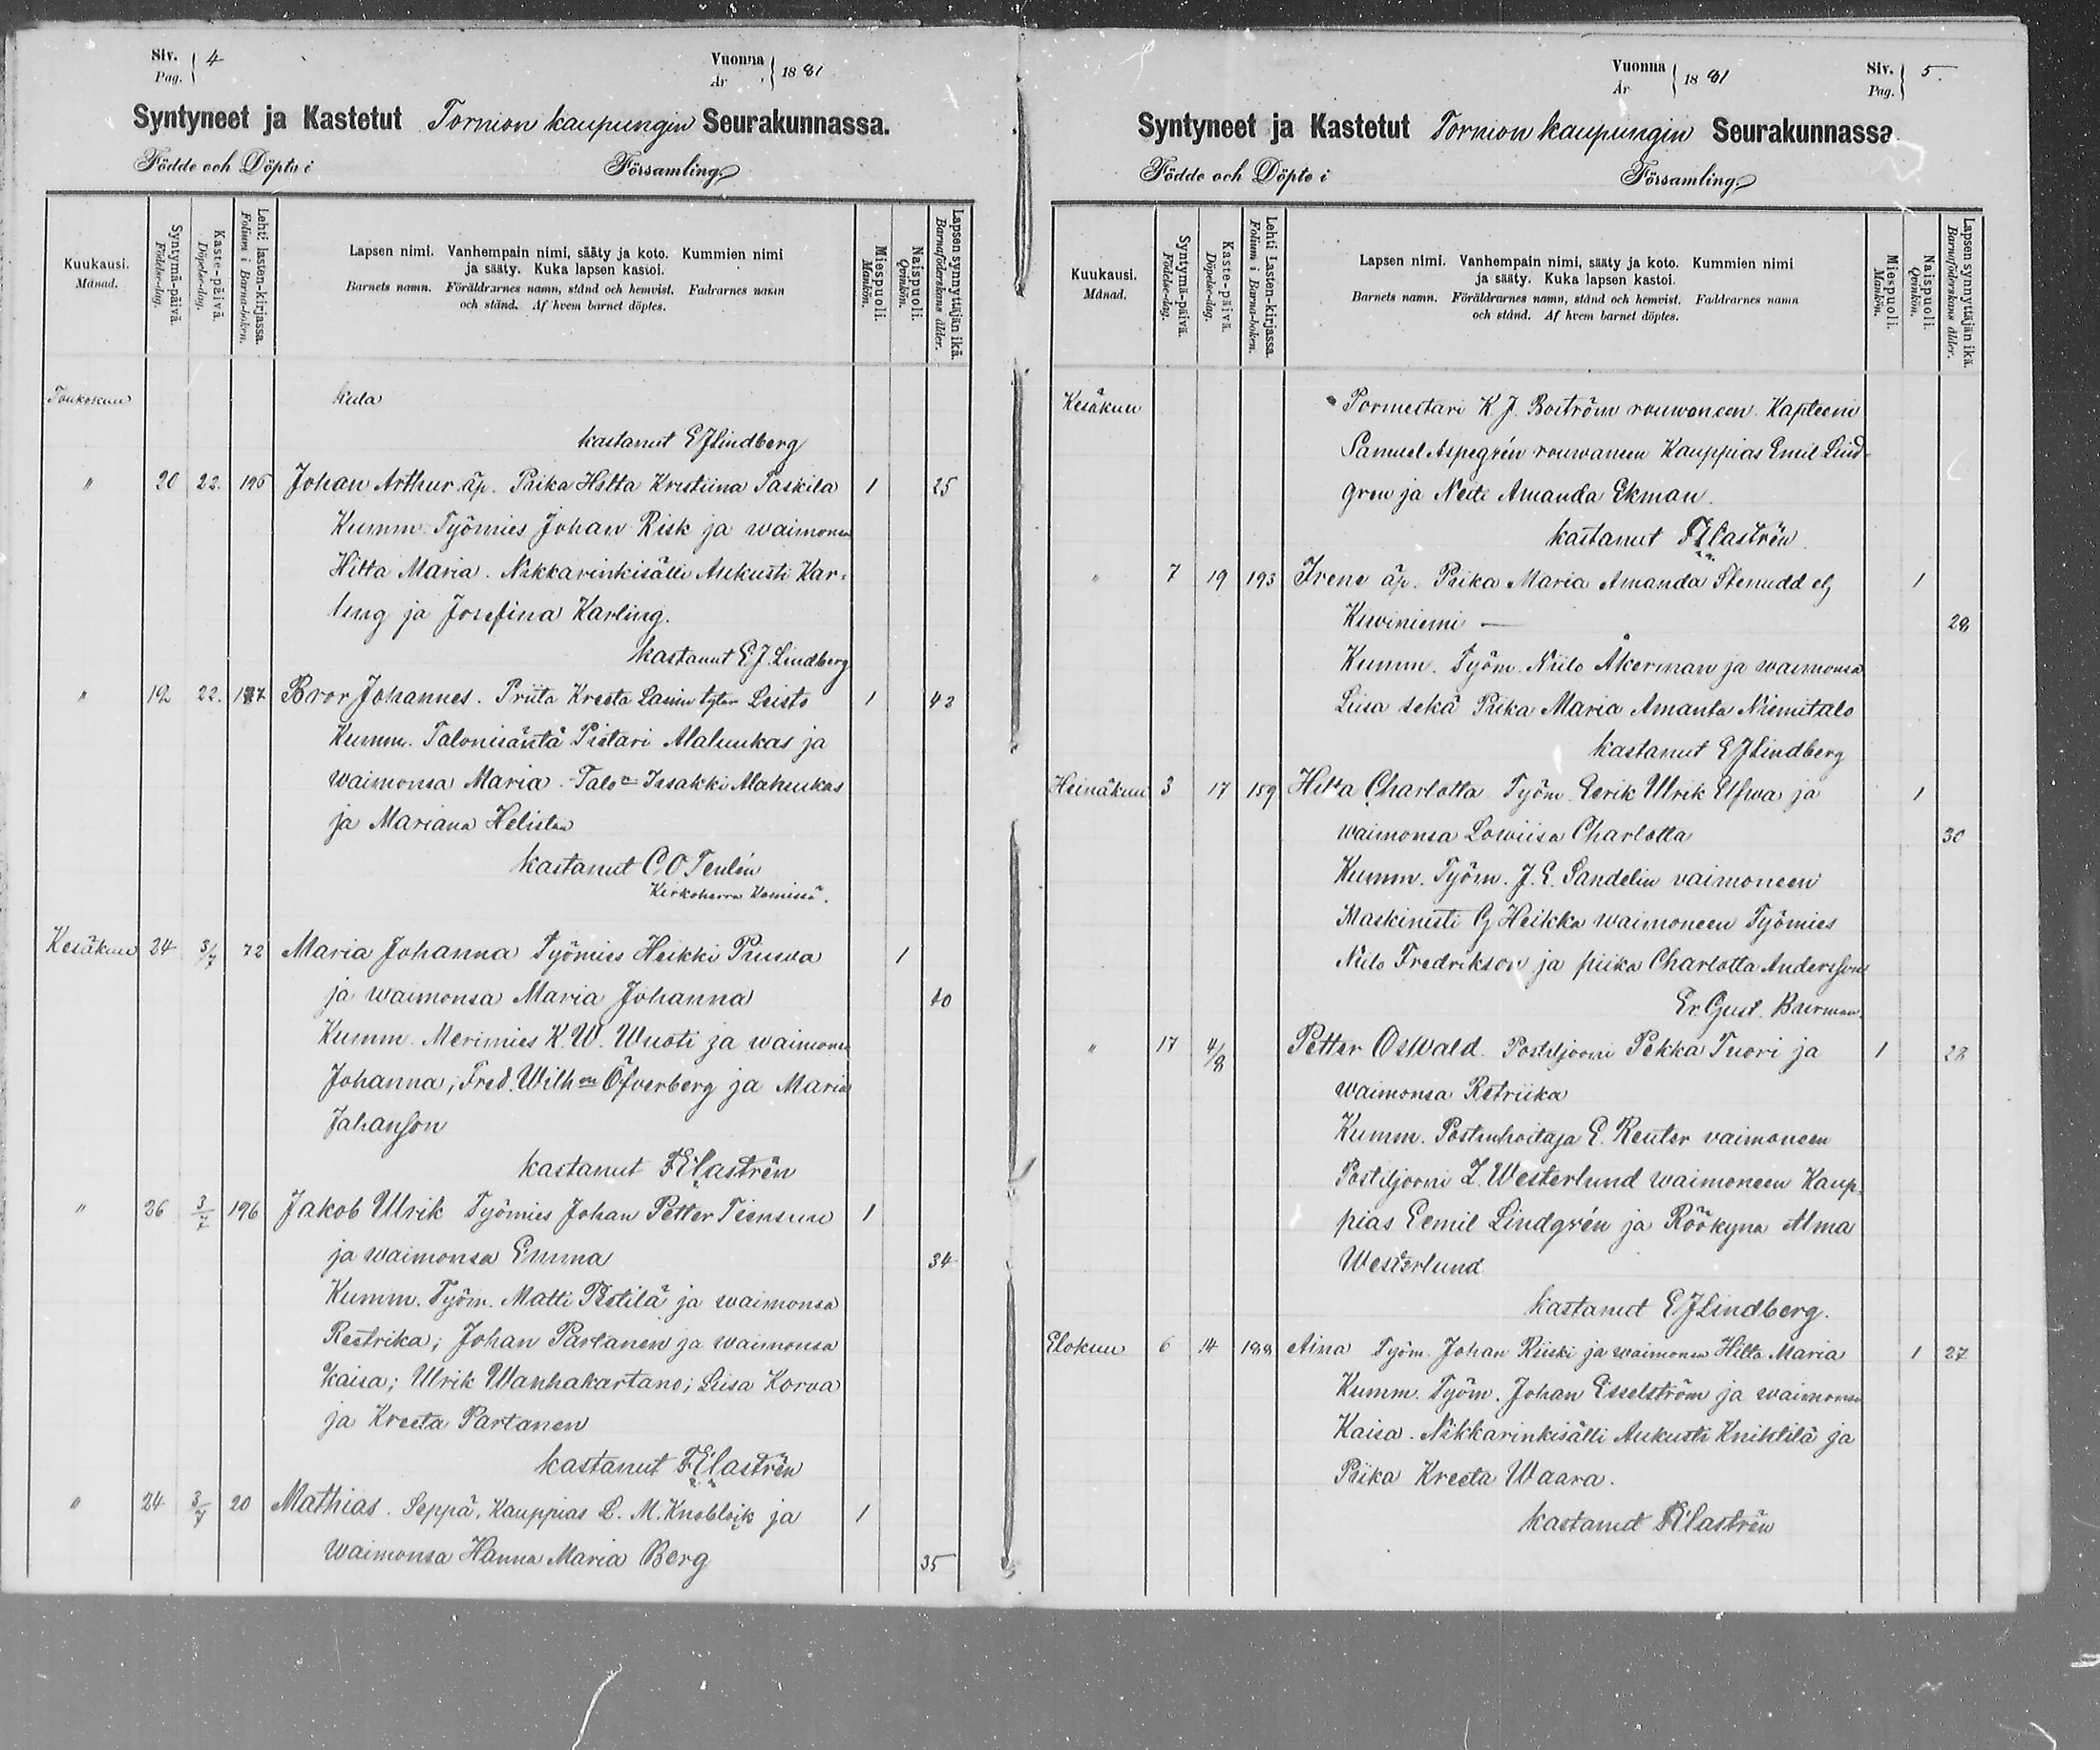 Siv. Pag. 4
Vuonna År 1881
Syntyneet ja Kastetut Tornion kaupungin Seurakunnassa.
Födde och Döpte i Församling
Kuukausi. Månad.
Syntymä-päivä. Födelse-dag.
Kaste-päivä. Döpelse-dag.
Lehti lasten-kirjassa. Folium i Barna-boken.
Lapsen nimi. Vanhempain nimi, sääty ja koto. Kummien nimi
ja sääty. Kuka lapsen kastoi.
Barnets namn. Föräldrarnes namn, stånd och hemvist. Fadrarnes namn
och stånd. Af hvem barnet döptes.
Miespuoli. Mankön.
Naispuoli. Qvinkön.
Lapsen synnyttäjän ikä. Barnaföderskans ålder.
Toukokuu
kastanut E J Lindberg
" 20 22. 196 Johan Arthur äp. Piika Hilta Kristiina Paskila 1 25
Kumm. Työmies Johan Risk ja waimonsa
Hilta Maria. Nikkarinkisälli Aukusti Kar-
ling ja Josefina Karling.
kastanut E J. Lindberg
" 12 22. 187 Bror Johannes. Priita Kreeta Laurin tytär Leisto 1 42
Kumm. Talonisäntä Pietari Alaluukas ja
waimonsa Maria. Talon Isakki Alaluukas
ja Mariana Helistén
kastanut C O Tenlén
Kirkoherra Kemissä.
Kesäkuu 24 3/7 72 Maria Johanna Työmies Heikki Priuwa 1
ja waimonsa Maria Johanna 40
Kumm. Merimies K. W. Wuoti ja waimonsa
Johanna; Fred. Wilhm Öfverberg ja Maria
Johanson
kastanut F E Castrén
" 26 3/7 196 Jakob Ulrik Työmies Johan Petter Tiensuu 1
ja waimonsa Emma 34
Kumm. Työm. Matti Pietilä ja waimonsa
Reetrika; Johan Partanen ja waimonsa
Kaisa; Ulrik Wanhakartano; Liisa Korva
ja Kreeta Partanen
kastanut F E Castrén
" 24 3/7 20 Mathias. Seppä, Kauppias L. M. Knoblock ja 1
waimonsa Hanna Maria Berg 35
Vuonna År 1881
Siv. Pag. 5.
Syntyneet ja Kastetut Tornion kaupungin Seurakunnassa.
Födde och Döpte i Församling
Kuukausi. Månad.
Syntymä-päivä. Födelse-dag.
Kaste-päivä. Döpelse-dag.
Lehti Lasten-kirjassa. Folium i Barna-boken.
Lapsen nimi. Vanhempain nimi, sääty ja koto. Kummien nimi
ja sääty. Kuka lapsen kastoi.
Barnets namn. Föräldrarnes namn, stånd och hemvist. Faddrarnes namn
och stånd. Af hvem barnet döptes.
Miespuoli. Mankön.
Naispuoli. Qvinkön.
Lapsen synnyttäjän ikä. Barnaföderskans ålder.
Kesäkuu Pormestari K. J. Boström rouwaneen. Kapteeni
Samuel Aspegrén rouwaneen Kauppias Emil Lind-
gren ja Neiti Amanda Ekman.
kastanut F E Castrén
" 7 19 193 Irene äp. Piika Maria Amanda Stenudd el.
Kiviniemi — 28
Kumm. Työm. Niilo Åkerman ja waimonsa
Liisa sekä Piika Maria Amanta Niemitalo
kastanut E J Lindberg
Heinäkuu 3 17 159 Hilta Charlotta Työm. Eerik Ulrik Elfwa ja 1
waimonsa Lowiisa Charlotta 30
Kumm. Työm. J. E. Sandelin vaimoneen
Maskinisti G Heikka waimoneen Työmies
Niilo Fredrikson ja piika Charlotta Andersson
Er. Gust. Burman.
" 17 4/8 Petter Oswald. Postiljooni Pekka Tuori ja 1 28
waimonsa Retriika
Kumm. Postinhoitaja E. Reuter vaimoneen
Postiljooni Z. Westerlund waimoneen Kaup-
pias Eemil Lindgrén ja Röökyna Alma
Westerlund
kastanut E J Lindberg.
Elokuu 6 14 188 Aina Työm. Johan Riiski ja waimonsa Hilta Maria 1 27
Kumm. Työm. Johan Esselström ja waimonsa
Kaisa. Nikkarinkisälli Aukusti Knihtilä ja
Piika Kreeta Waara.
kastanut F E Castrén